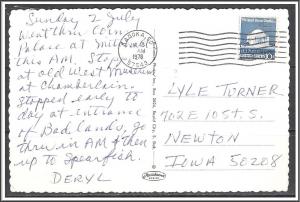 Sunday 2 July
Went thru Corn
Palace at Mitchell
this AM. Stop
at old West Museum
at Chamberlain.
Stopped early to
day at entrance
of Bad Lands, go
thru in AM & then
up to Spearfish.
DERYL
1978
LYLE TURNER
702 E 10 ST. S.
NEWTON
IOWA 50208